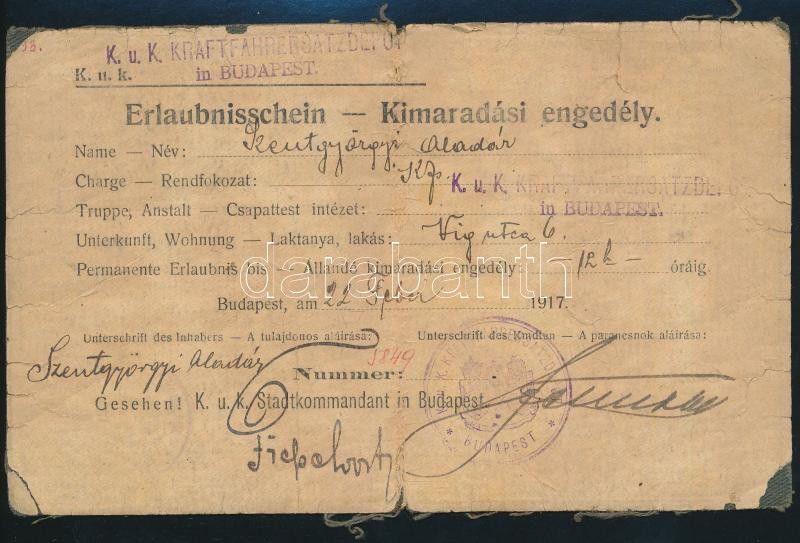 K. u. K. KRAFTFAHRERSATZDEPOT
K. u. k. in BUDAPEST.
Erlaubnisschein — Kimaradási engedély.
Name — Név: Szentgyörgyi Aladár
Charge — Rendfokozat: Kfs
K. u. K. KRAFTFAHRERSATZDEPO
Truppe, Anstalt — Csapattest intézet: in BUDAPEST.
Unterkunft, Wohnung — Laktanya, lakás: Vig utca 6.
Permanente Erlaubnis bis — Állandó kimaradási engedély: —12h— óráig
darabanth
Budapest, am 22 Feber 1917.
Unterschrift des Inhabers — A tulajdonos aláírása: Unterschrift des Kmdtan — A parancsnok aláírása:
Szentgyörgyi Aladár
Nummer: 5849
Gesehen! K. u. k. Stadtkommandant in Budapest
* BUDAPEST *